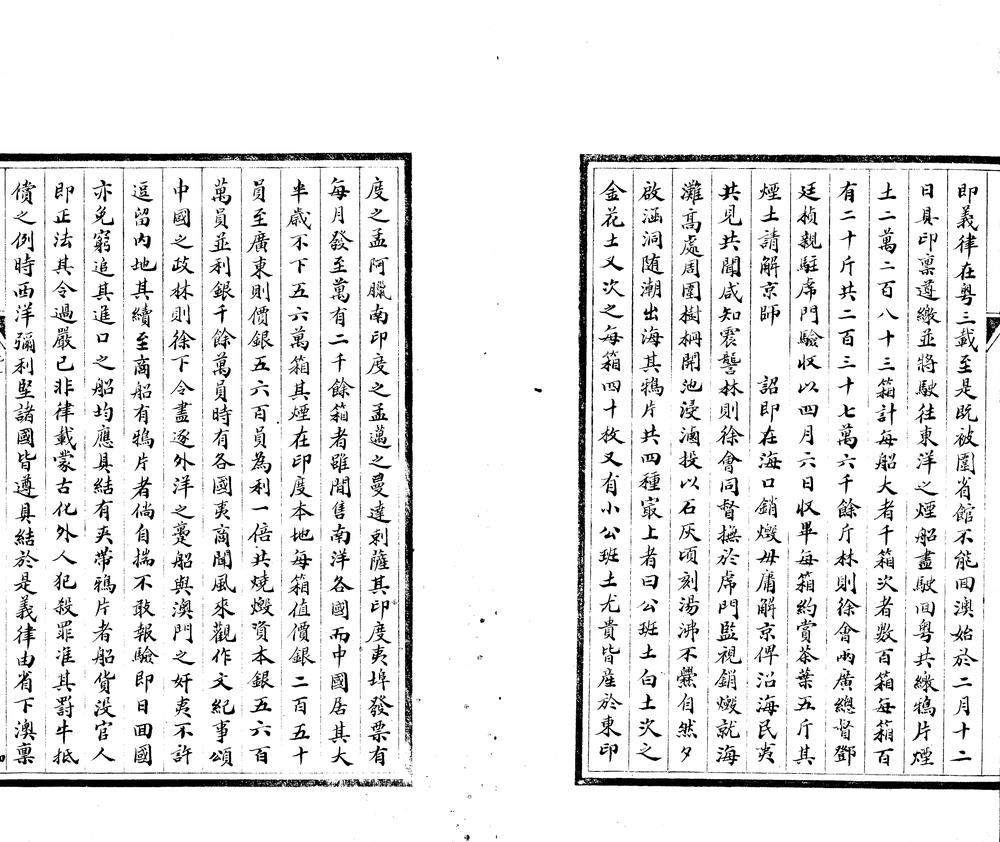 即義律在粵三載至是既被圍省館不能回澳始於二月十二
日具印稟遵繳並將駛往東洋之煙船盡駛回粵共繳鴉片煙
土二萬二百八十三箱計每船大者千箱次者數百箱每箱百
有二十斤共二百三十七萬六千餘斤林則徐會兩廣總督鄧
廷楨親駐虎門驗收以四月六日收畢每箱約賞茶葉五斤其
煙土請解京師　詔即在海口銷燬毋庸解京俾沿海民夷
共見共聞咸知震讋林則徐會同督撫於虎門監視銷燬就海
灘高處周圍樹柵開池浸滷投以石灰頃刻湯沸不爨自然夕
啟涵洞隨潮出海其鴉片共四種最上者曰公班土白土次之
金花土又次之每箱四十枚又有小公班土尤貴皆產於東印
度之孟阿臘南印度之孟邁之曼達剌薩其印度夷埠發票有
每月發至萬有二千餘箱者雖間售南洋各國而中國居其大
半歲不下五六萬箱其煙在印度本地每箱值價銀二百五十
員至廣東則價銀五六百員為利一倍共燒燬資本銀五六百
萬員並利銀千餘萬員時有各國夷商聞風來觀作文紀事頌
中國之政林則徐下令盡逐外洋之躉船與澳門之奸夷不許
逗留內地其續至商船有鴉片者倘自揣不敢報驗即日回國
亦免窮追其進口之船均應具結有夾帶鴉片者船貨沒官人
即正法其令過嚴已非律載蒙古化外人犯殺罪准其罰牛抵
償之例時西洋彌利堅諸國皆遵具結於是義律由省下澳稟